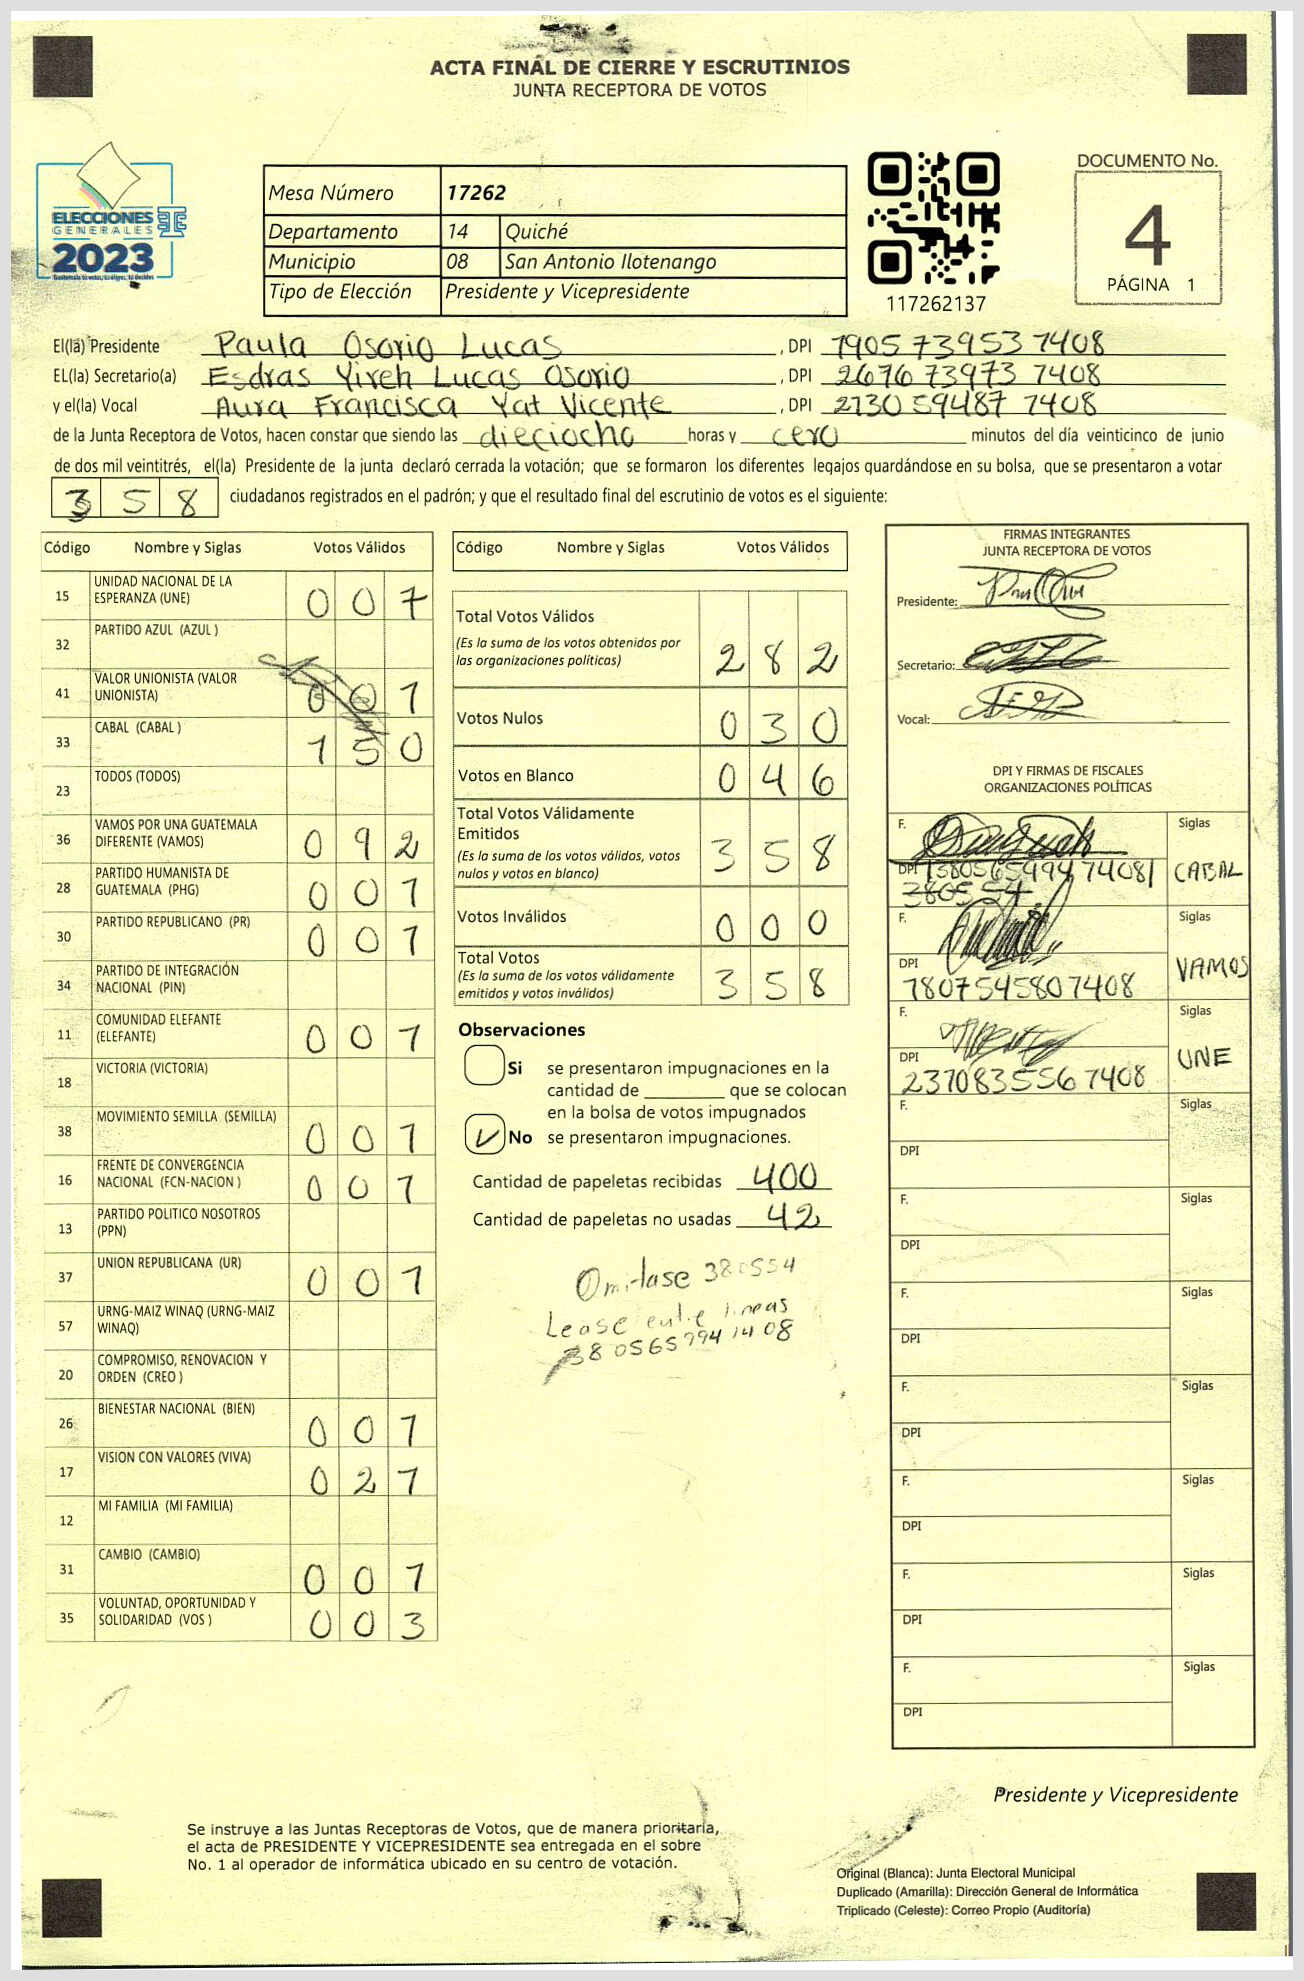 ACTA FINAL DE CIERRE Y ESCRUTINIOS
JUNTA RECEPTORA DE VOTOS
ELECCIONES
GENERALES
2023
Mesa Número 17262
Departamento 14 Quiché
Municipio 08 San Antonio Ilotenango
Tipo de Elección Presidente y Vicepresidente
117262137
DOCUMENTO No.
4
PÁGINA 1
El(la) Presidente Paula Osorio Lucas , DPI 1905 73953 1408
EL(la) Secretario(a) Esdras Yireh Lucas Osorio , DPI 2676 73973 1408
y el(la) Vocal Aura Francisca Yat Vicente , DPI 2130 59487 1408
de la Junta Receptora de Votos, hacen constar que siendo las dieciocho horas y cero minutos del día veinticinco de junio
de dos mil veintitrés, el(la) Presidente de la junta declaró cerrada la votación; que se formaron los diferentes legajos guardándose en su bolsa, que se presentaron a votar
3 5 8 ciudadanos registrados en el padrón; y que el resultado final del escrutinio de votos es el siguiente:
Código Nombre y Siglas Votos Válidos
15 UNIDAD NACIONAL DE LA ESPERANZA (UNE) 0 0 7
32 PARTIDO AZUL (AZUL )
41 VALOR UNIONISTA (VALOR UNIONISTA) 0 0 1
33 CABAL (CABAL ) 1 5 0
23 TODOS (TODOS)
36 VAMOS POR UNA GUATEMALA DIFERENTE (VAMOS) 0 9 2
28 PARTIDO HUMANISTA DE GUATEMALA (PHG) 0 0 1
30 PARTIDO REPUBLICANO (PR) 0 0 1
34 PARTIDO DE INTEGRACIÓN NACIONAL (PIN)
11 COMUNIDAD ELEFANTE (ELEFANTE) 0 0 1
18 VICTORIA (VICTORIA)
38 MOVIMIENTO SEMILLA (SEMILLA) 0 0 1
16 FRENTE DE CONVERGENCIA NACIONAL (FCN-NACION ) 0 0 1
13 PARTIDO POLITICO NOSOTROS (PPN)
37 UNION REPUBLICANA (UR) 0 0 1
57 URNG-MAIZ WINAQ (URNG-MAIZ WINAQ)
20 COMPROMISO, RENOVACION Y ORDEN (CREO )
26 BIENESTAR NACIONAL (BIEN) 0 0 1
17 VISION CON VALORES (VIVA) 0 2 1
12 MI FAMILIA (MI FAMILIA)
31 CAMBIO (CAMBIO) 0 0 1
35 VOLUNTAD, OPORTUNIDAD Y SOLIDARIDAD (VOS ) 0 0 3
Código Nombre y Siglas Votos Válidos
Total Votos Válidos
(Es la suma de los votos obtenidos por
las organizaciones políticas) 2 8 2
Votos Nulos 0 3 0
Votos en Blanco 0 4 6
Total Votos Válidamente
Emitidos
(Es la suma de los votos válidos, votos
nulos y votos en blanco) 3 5 8
Votos Inválidos 0 0 0
Total Votos
(Es la suma de los votos válidamente
emitidos y votos inválidos) 3 5 8
Observaciones
Si se presentaron impugnaciones en la
cantidad de ________ que se colocan
en la bolsa de votos impugnados
No se presentaron impugnaciones.
Cantidad de papeletas recibidas 400
Cantidad de papeletas no usadas 42
Omitase 380554
Lease entre lineas
FIRMAS INTEGRANTES
JUNTA RECEPTORA DE VOTOS
Presidente:
Secretario:
Vocal:
DPI Y FIRMAS DE FISCALES
ORGANIZACIONES POLÍTICAS
F. Siglas
DPI CABAL
380554
F. Siglas
DPI VAMOS
1807545807408
F. Siglas
DPI UNE
2370835567408
F. Siglas
DPI
F. Siglas
DPI
F. Siglas
DPI
F. Siglas
DPI
F. Siglas
DPI
F. Siglas
DPI
F. Siglas
DPI
Presidente y Vicepresidente
Se instruye a las Juntas Receptoras de Votos, que de manera prioritaria,
el acta de PRESIDENTE Y VICEPRESIDENTE sea entregada en el sobre
No. 1 al operador de informática ubicado en su centro de votación.
Original (Blanca): Junta Electoral Municipal
Duplicado (Amarilla): Dirección General de Informática
Triplicado (Celeste): Correo Propio (Auditoría)